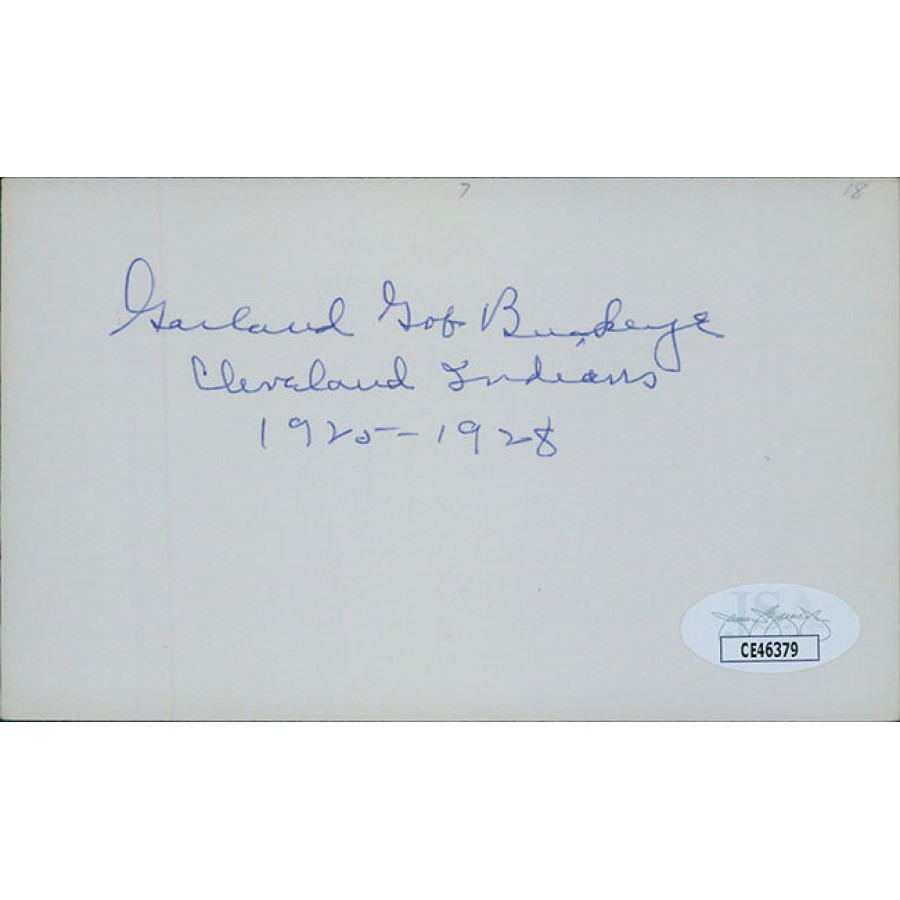 7 18
Garland Gob Buckeye
Cleveland Indians
1925-1928
JSA
CE46379